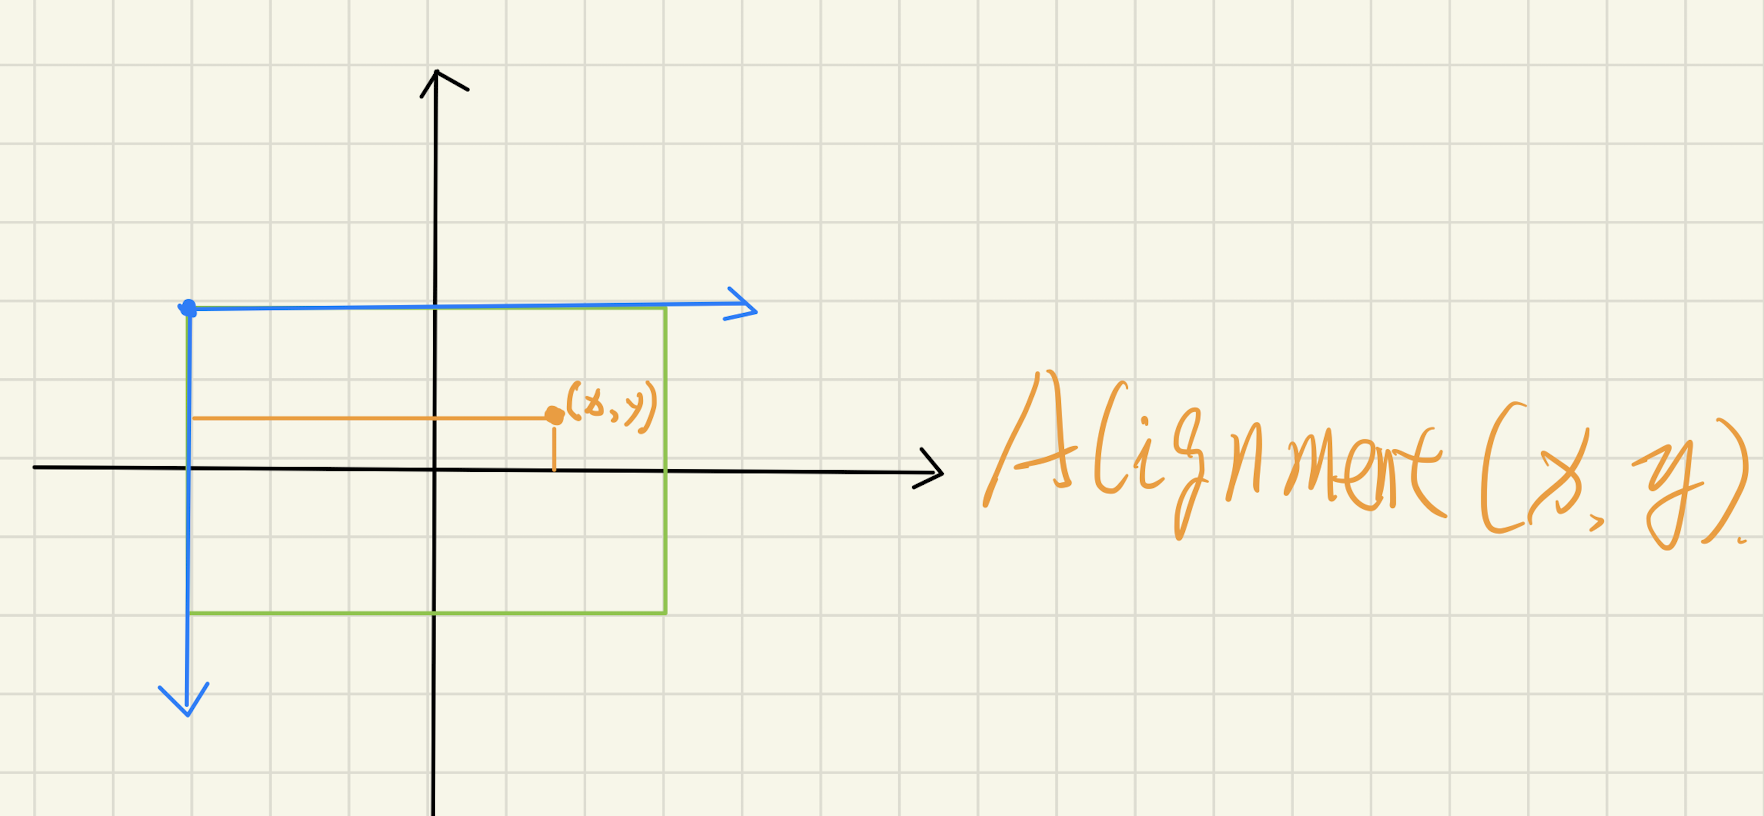 (x,y)
Alignment(x,y).